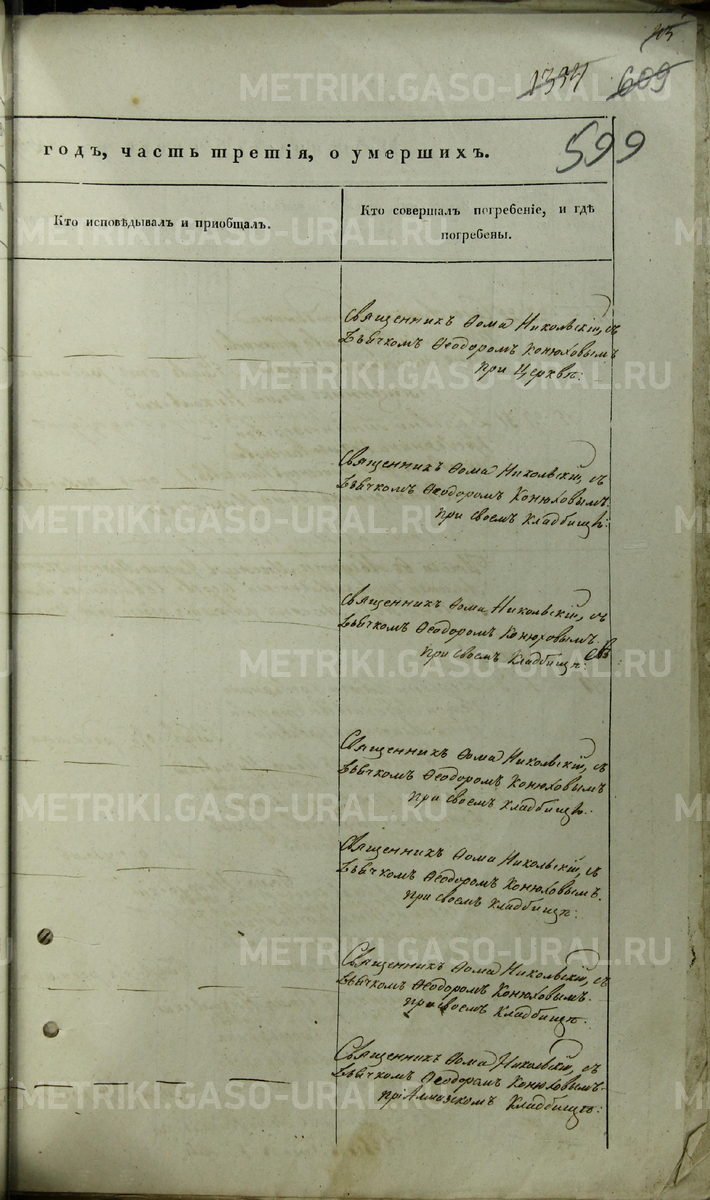 1394 609
599
METRIKI.GASO-URAL.RU
годъ, часть третія, о умершихъ.
Кто исповѣдывалъ и приобщалъ.
Кто совершалъ погребеніе, и гдѣ
погребены.
Священникъ Ѳома Никольскій, съ
Дьячкомъ Ѳеодоромъ Конюховымъ
при Церкви:
Священникъ Ѳома Никольскій, съ
Дьячкомъ Ѳеодоромъ Конюховымъ.
при своемъ Кладбищѣ:
Священникъ Ѳома Никольскій, съ
Дьячкомъ Ѳеодоромъ Конюховымъ.
при своемъ Кладбищѣ:
Священникъ Ѳома Никольскій, съ
Дьячкомъ Ѳеодоромъ Конюховымъ
при своемъ Кладбищѣ.
Священникъ Ѳома Никольскій, съ
Дьячкомъ Ѳеодоромъ Конюховымъ.
при своемъ Кладбищѣ:
Священникъ Ѳома Никольскій, съ
Дьячкомъ Ѳеодоромъ Конюховымъ.
при своемъ Кладбищѣ.
Священникъ Ѳома Никольскій, съ
Дьячкомъ Ѳеодоромъ Конюховымъ.
Кладбищѣ: